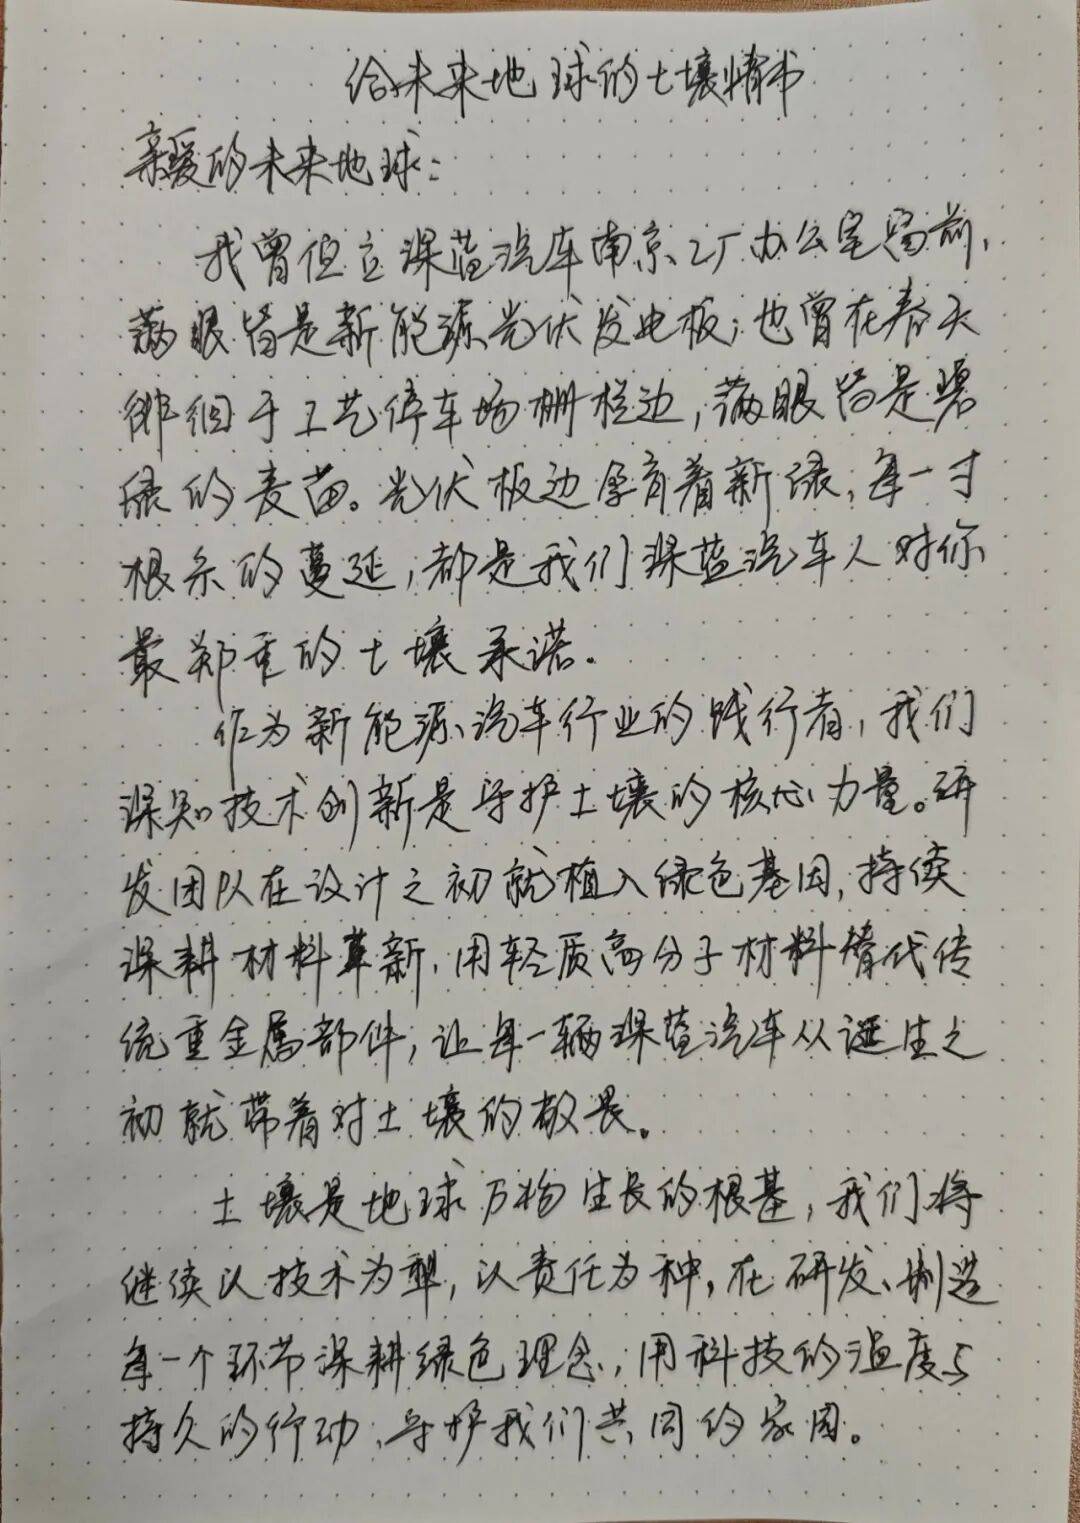 给未来地球的土壤情书
亲爱的未来地球：
我曾伫立深蓝汽车南京工厂办公室窗前，
满眼皆是新能源光伏发电板；也曾在春天
徘徊于工艺停车场栅栏边，满眼皆是碧
绿的麦苗。光伏板边孕育着新绿，每一寸
根系的蔓延，都是我们深蓝汽车人对你
最郑重的土壤承诺。
作为新能源汽车行业的践行者，我们
深知技术创新是守护土壤的核心力量。研
发团队在设计之初就植入绿色基因，持续
深耕材料革新，用轻质高分子材料替代传
统重金属部件，让每一辆深蓝汽车从诞生之
初就带着对土壤的敬畏。
土壤是地球万物生长的根基，我们将
继续以技术为犁，以责任为种，在研发、制造
每一个环节深耕绿色理念，用科技的温度与
持久的行动，守护我们共同的家园。